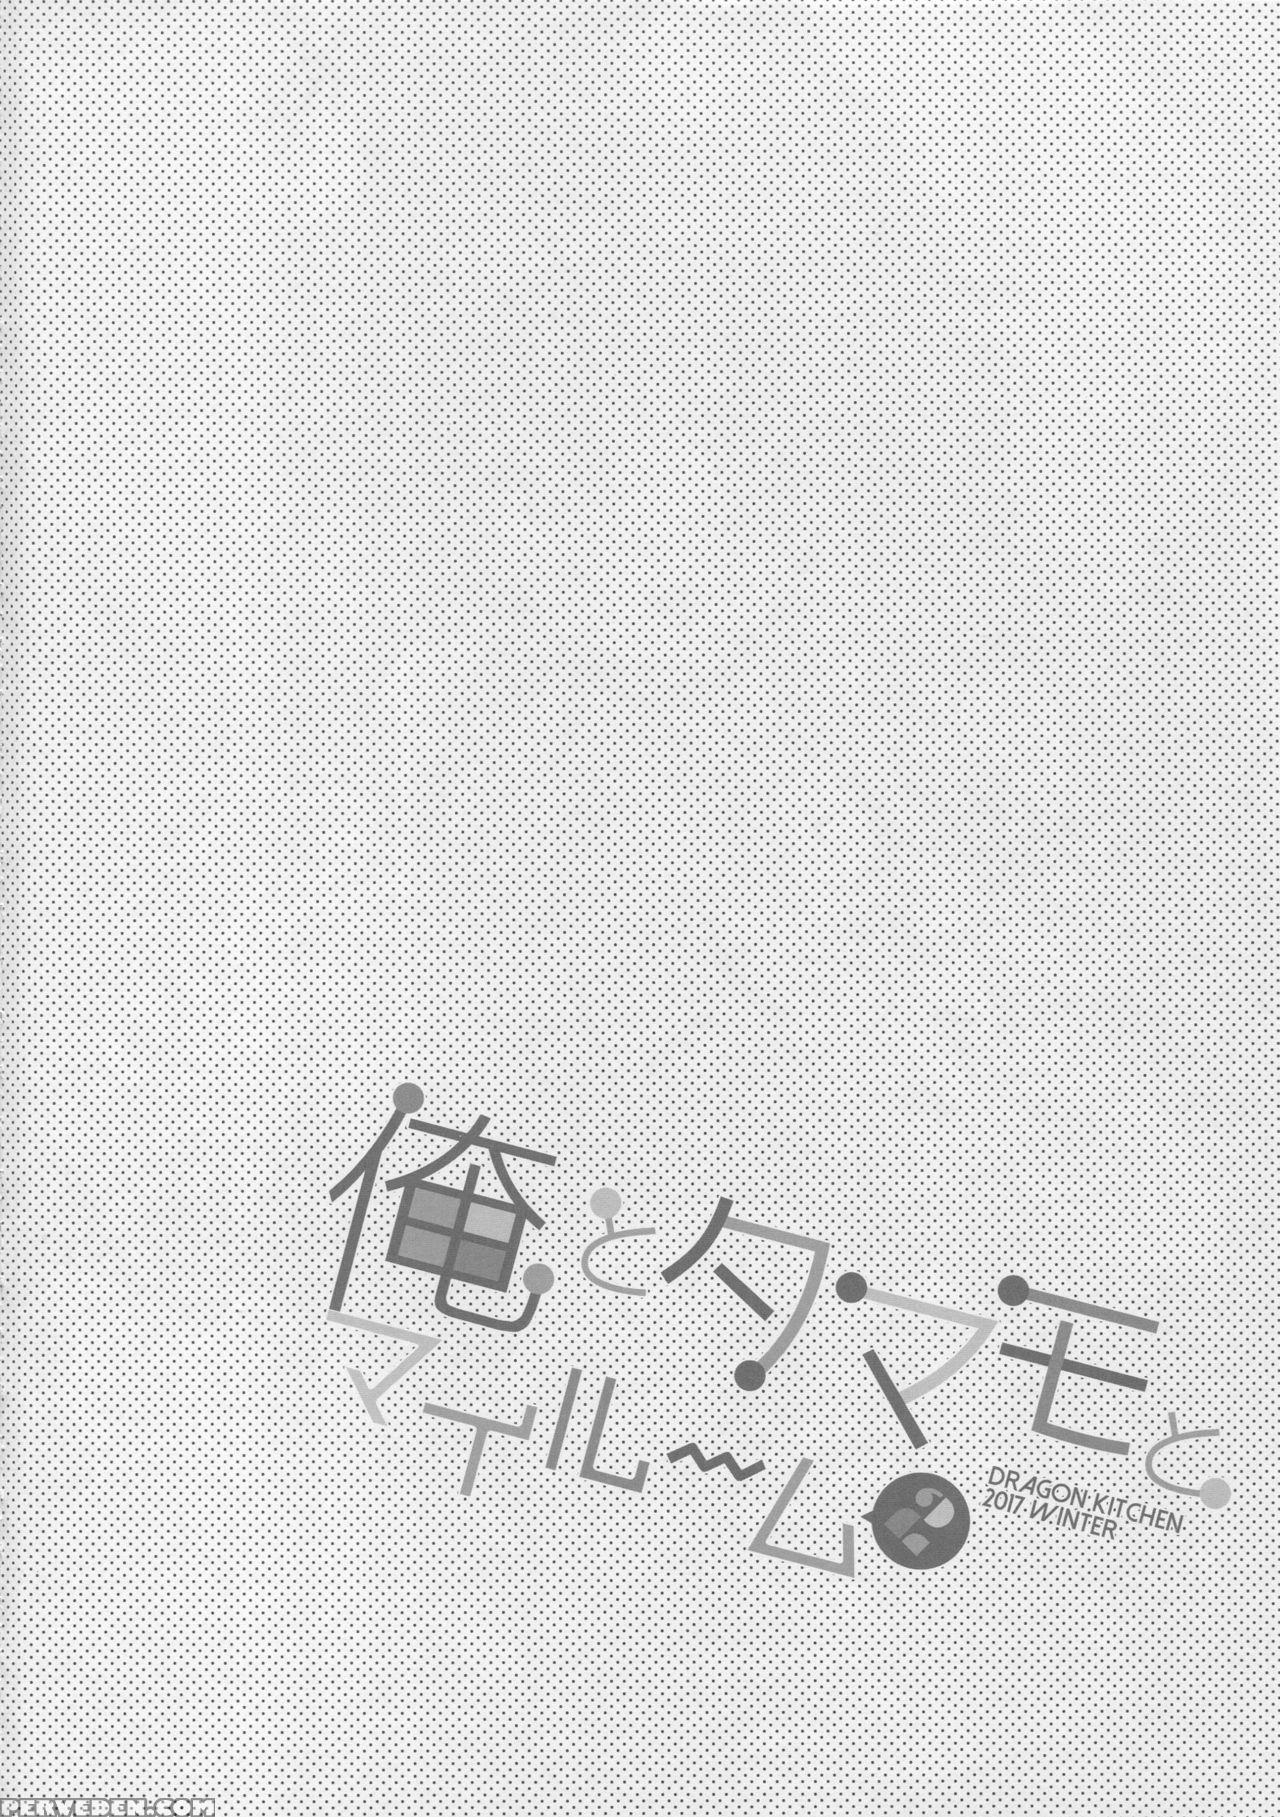 俺とタマモと
マイル〜ム
DRAGON KITCHEN
2017 WINTER
PERVEDEN.COM